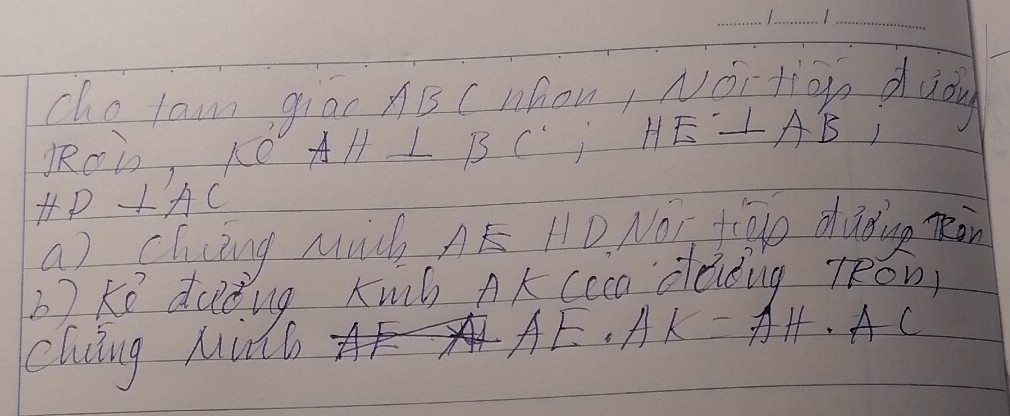 Cho tam giác ABC nhọn, Nội tiếp đường
TRòn, Kẻ AH ⊥ BC ; HE ⊥ AB ;
HD ⊥ AC
a) Chứng Minh AE HD Nội tiếp đường TRòn
b) Kẻ đường Kính AK của đường TRòn,
Chứng Minh AE . AK = AH . AC